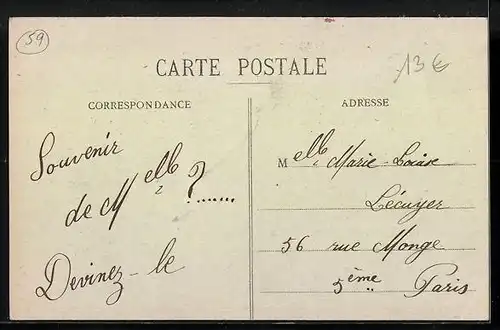 59
13€
CARTE POSTALE
CORRESPONDANCE
Souvenir
de Melle ?......
Devinez-le
ADRESSE
Melle Marie-Louise
Lécuyer
56 rue Monge
5ème Paris